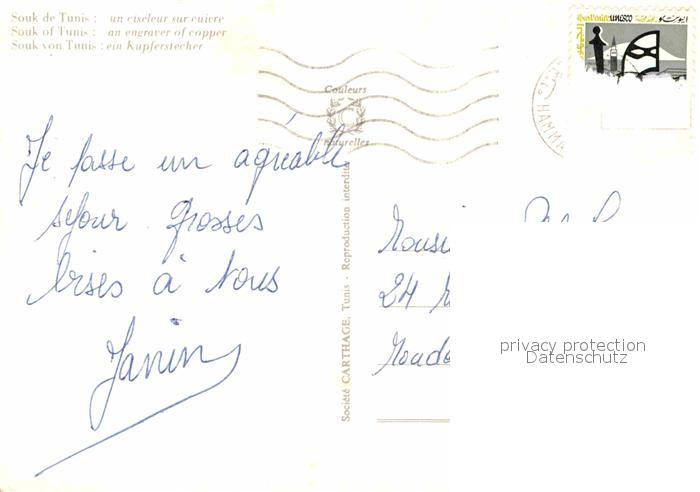 Souk de Tunis : un ciseleur sur cuivre
Souk of Tunis : an engraver of copper
Souk von Tunis : ein Kupferstecher
Couleurs
naturelles
UNESCO
HAMMA
Je passe un agréable
séjour Grosses
bises à tous
Janin
Société CARTHAGE, Tunis - Reproduction interdite
Monsi
24
privacy protection
Datenschutz